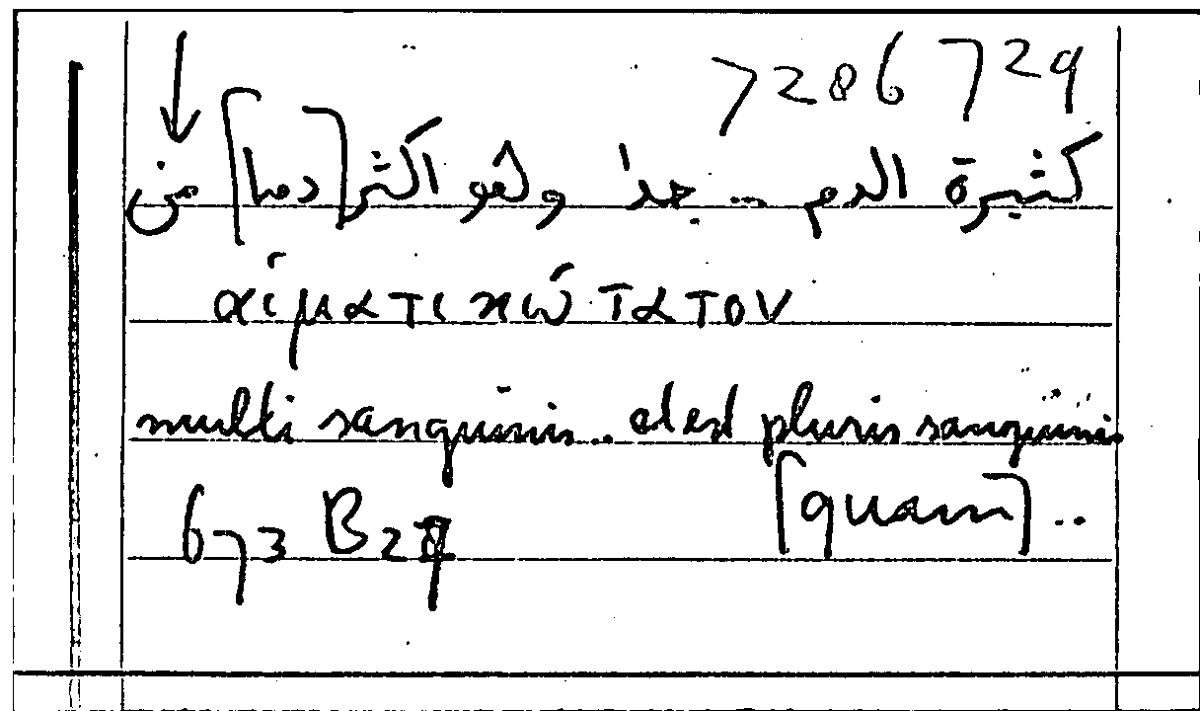 7286 729
كثيرة الدم .. جدا ولهو اكثر [دما] من
αἱματικώτατον
multi sanguinis .. et est pluris sanguinis
[quam] ..
673 B 27